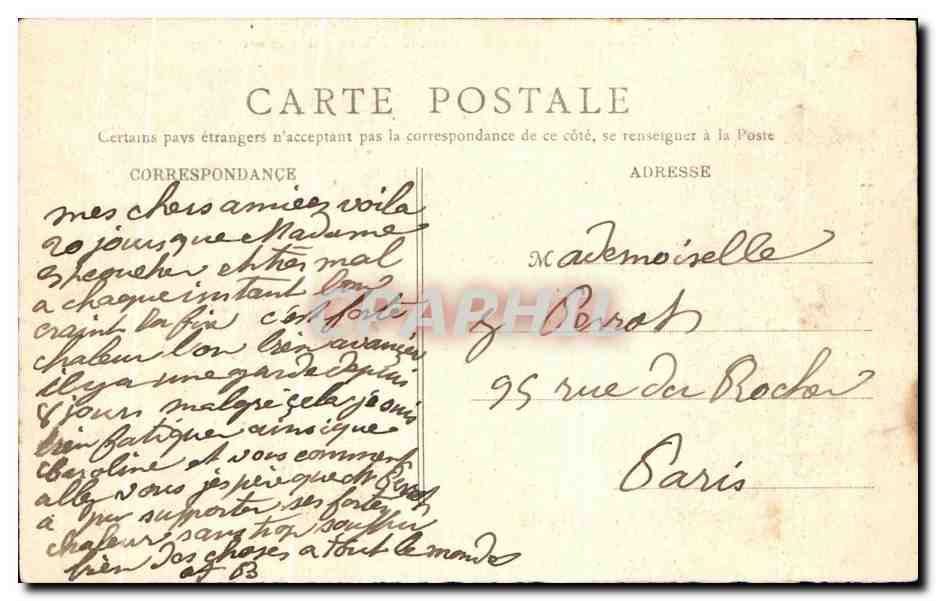 CARTE POSTALE
Certains pays étrangers n'acceptant pas la correspondance de ce côté, se renseigner à la Poste
CORRESPONDANCE
ADRESSE
mes chers amiées voila
20 jours que Madame
es coucher et très mal
a chaque instant l'on
craint la fin c'est forte
chaleur l'on bien avancée
il y a une garde depuis
8 jours malgré çela je suis
bien fatiguer ainsi que
Caroline et vous comment
aller vous j'espère que M Perrot
a pu supporter ses fortes
chaleurs sans trop souffrir
bien des choses a tout le monde
Mademoiselle
Y Perrot
95 rue du Rocher
Paris
CPAPHIL